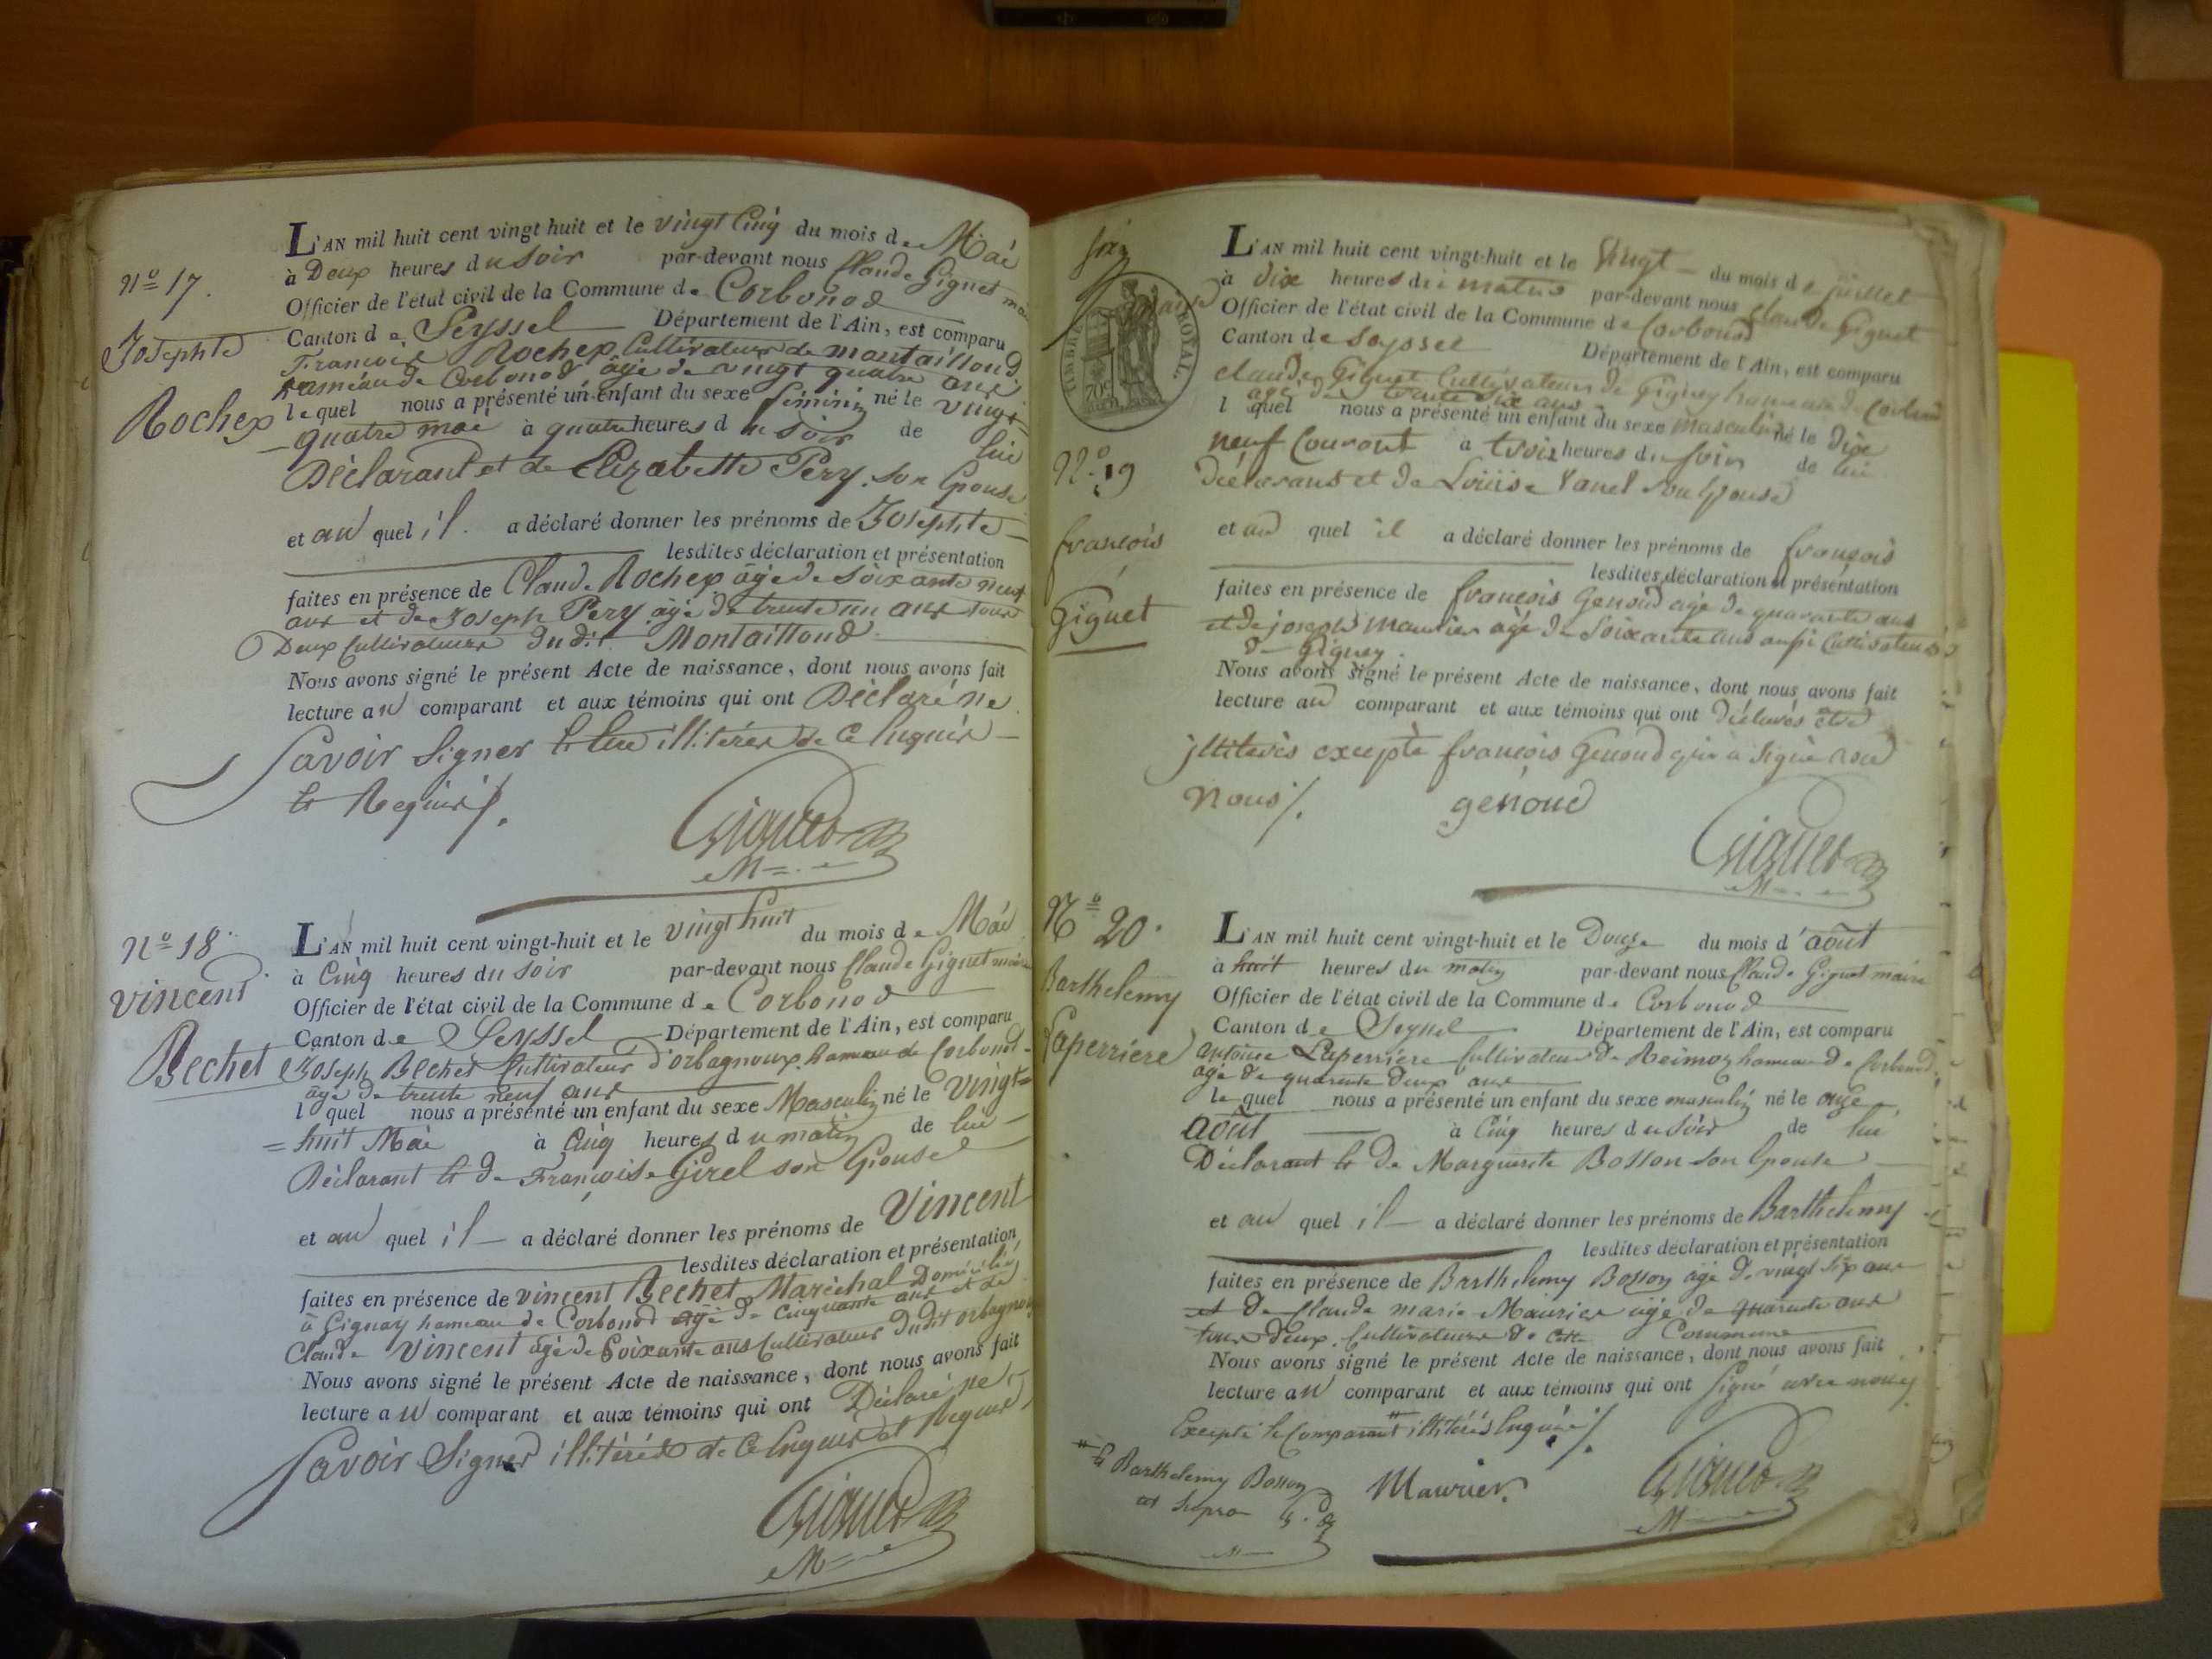 N° 17.
Josephte
Rochex
L'AN mil huit cent vingt huit et le vingt Cinq du mois de Mai
à Deux heures du Soir par-devant nous Claude Giguet maire
Officier de l'état civil de la Commune de Corbonod
Canton de Seyssel Département de l'Ain, est comparu
François Rochex Cultivateur de montaillond
hameau de Corbonod âgé de vingt quatre ans
lequel nous a présenté un enfant du sexe féminin né le vingt=
quatre mai à quatre heures du Soir de lui
Déclarant et de Elizabette Pery son Epouse
et au quel il a déclaré donner les prénoms de Josephte
lesdites déclaration et présentation
faites en présence de Claude Rochex âgé de Soixante neuf
ans et de Joseph Pery âgé de trente un ans tous
Deux Cultivateurs dudit Montaillond
Nous avons signé le présent Acte de naissance, dont nous avons fait
lecture au comparant et aux témoins qui ont Déclaré ne
Savoir Signer illitérés de ce Enquis
et Requis /.
Giguet
M
N° 18.
Vincent
Bechet
L'AN mil huit cent vingt-huit et le vingt huit du mois de Mai
à Cinq heures du soir par-devant nous Claude Giguet maire
Officier de l'état civil de la Commune de Corbonod
Canton de Seyssel Département de l'Ain, est comparu
Joseph Bechet Cultivateur d'orbagnoux hameau de Corbonod
âgé de trente neuf ans
l quel nous a présenté un enfant du sexe Masculin né le vingt=
=huit Mai à Cinq heures du matin de lui
Déclarant et de Françoise Girel son Epouse
et au quel il a déclaré donner les prénoms de Vincent
lesdites déclaration et présentation
faites en présence de vincent Bechet Maréchal Domicilié
à Gignay hameau de Corbonod âgé de Cinquante ans et de
Claude Vincent âgé de Soixante ans Cultivateur dudit orbagnoux
Nous avons signé le présent Acte de naissance, dont nous avons fait
lecture au comparant et aux témoins qui ont Déclaré ne
Savoir Signer illitérés de ce Enquis et Requis
Giguet
M
Six
TIMBRE ROYAL.
70c
N° 19
françois
Giguet
L'AN mil huit cent vingt-huit et le Vingt du mois de juillet
à dix heures du matin par-devant nous claude Giguet
maire Officier de l'état civil de la Commune de Corbonod
Canton de Seyssel Département de l'Ain, est comparu
claude Giguet Cultivateur de Gignay hameau de Corbonod
agé de trente six ans
l quel nous a présenté un enfant du sexe masculin né le dix
neuf Courant à trois heures du soir de lui
déclarant et de Louise Vanel son Epouse
et au quel il a déclaré donner les prénoms de françois
lesdites déclaration et présentation
faites en présence de françois Genoud agé de quarante ans
et de joseph Maurier âgé de Soixante ans aussi Cultivateurs
de Gignay.
Nous avons signé le présent Acte de naissance, dont nous avons fait
lecture au comparant et aux témoins qui ont déclarés etre
illiterés excepté françois Genoud qui a Signé avec
Nous /.
genoud
Giguet
M
N° 20.
Barthelemy
Laperriere
L'AN mil huit cent vingt-huit et le Douze du mois d'août
à huit heures du matin par-devant nous Claude Giguet maire
Officier de l'état civil de la Commune de Corbonod
Canton de Seyssel Département de l'Ain, est comparu
antoine Laperriere Cultivateur de Reimoz hameau de Corbonod
agé de quarante Deux ans
le quel nous a présenté un enfant du sexe masculin né le onze
août à Cinq heures du Soir de lui
Déclarant et de Marguerite Bosson son Epouse
et au quel il a déclaré donner les prénoms de Barthelemy
lesdites déclaration et présentation
faites en présence de Barthelemy Bosson âgé de vingt Six ans
et de Claude marie Maurier âgé de quarante ans
tous deux Cultivateurs de cette Commune
Nous avons signé le présent Acte de naissance, dont nous avons fait
lecture au comparant et aux témoins qui ont Signé avec nous
Excepté le Comparant illitérés Enquis /.
et Barthelemy Bosson
Maurier
Giguet
M